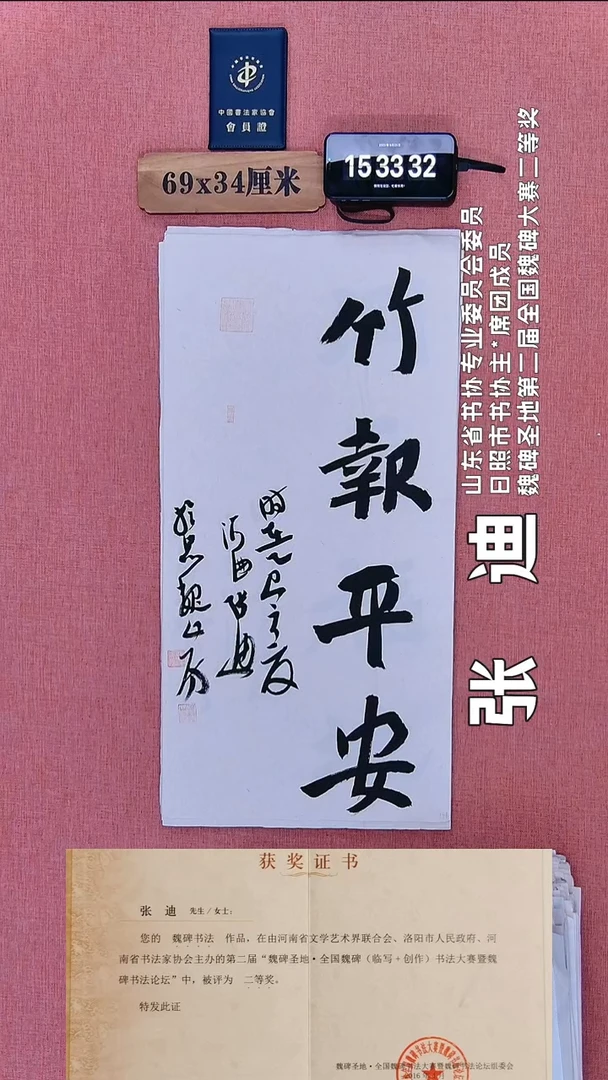 中國書法家協會
會員證
69x34厘米
15 33 32
竹報平安
时在乙巳之夏
山东省书协专业委员会委员
日照市书协主*席团成员
魏碑圣地第二届全国魏碑大赛二等奖
张 迪
获奖证书
张 迪 先生/女士:
您的 魏碑书法 作品,在由河南省文学艺术界联合会、洛阳市人民政府、河
南省书法家协会主办的第二届“魏碑圣地·全国魏碑(临写+创作)书法大赛暨魏
碑书法论坛”中,被评为 二等奖。
特发此证
魏碑圣地·全国魏碑书法大赛暨魏碑书法论坛组委会